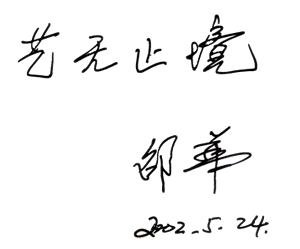 艺无止境
邵华
2002.5.24.